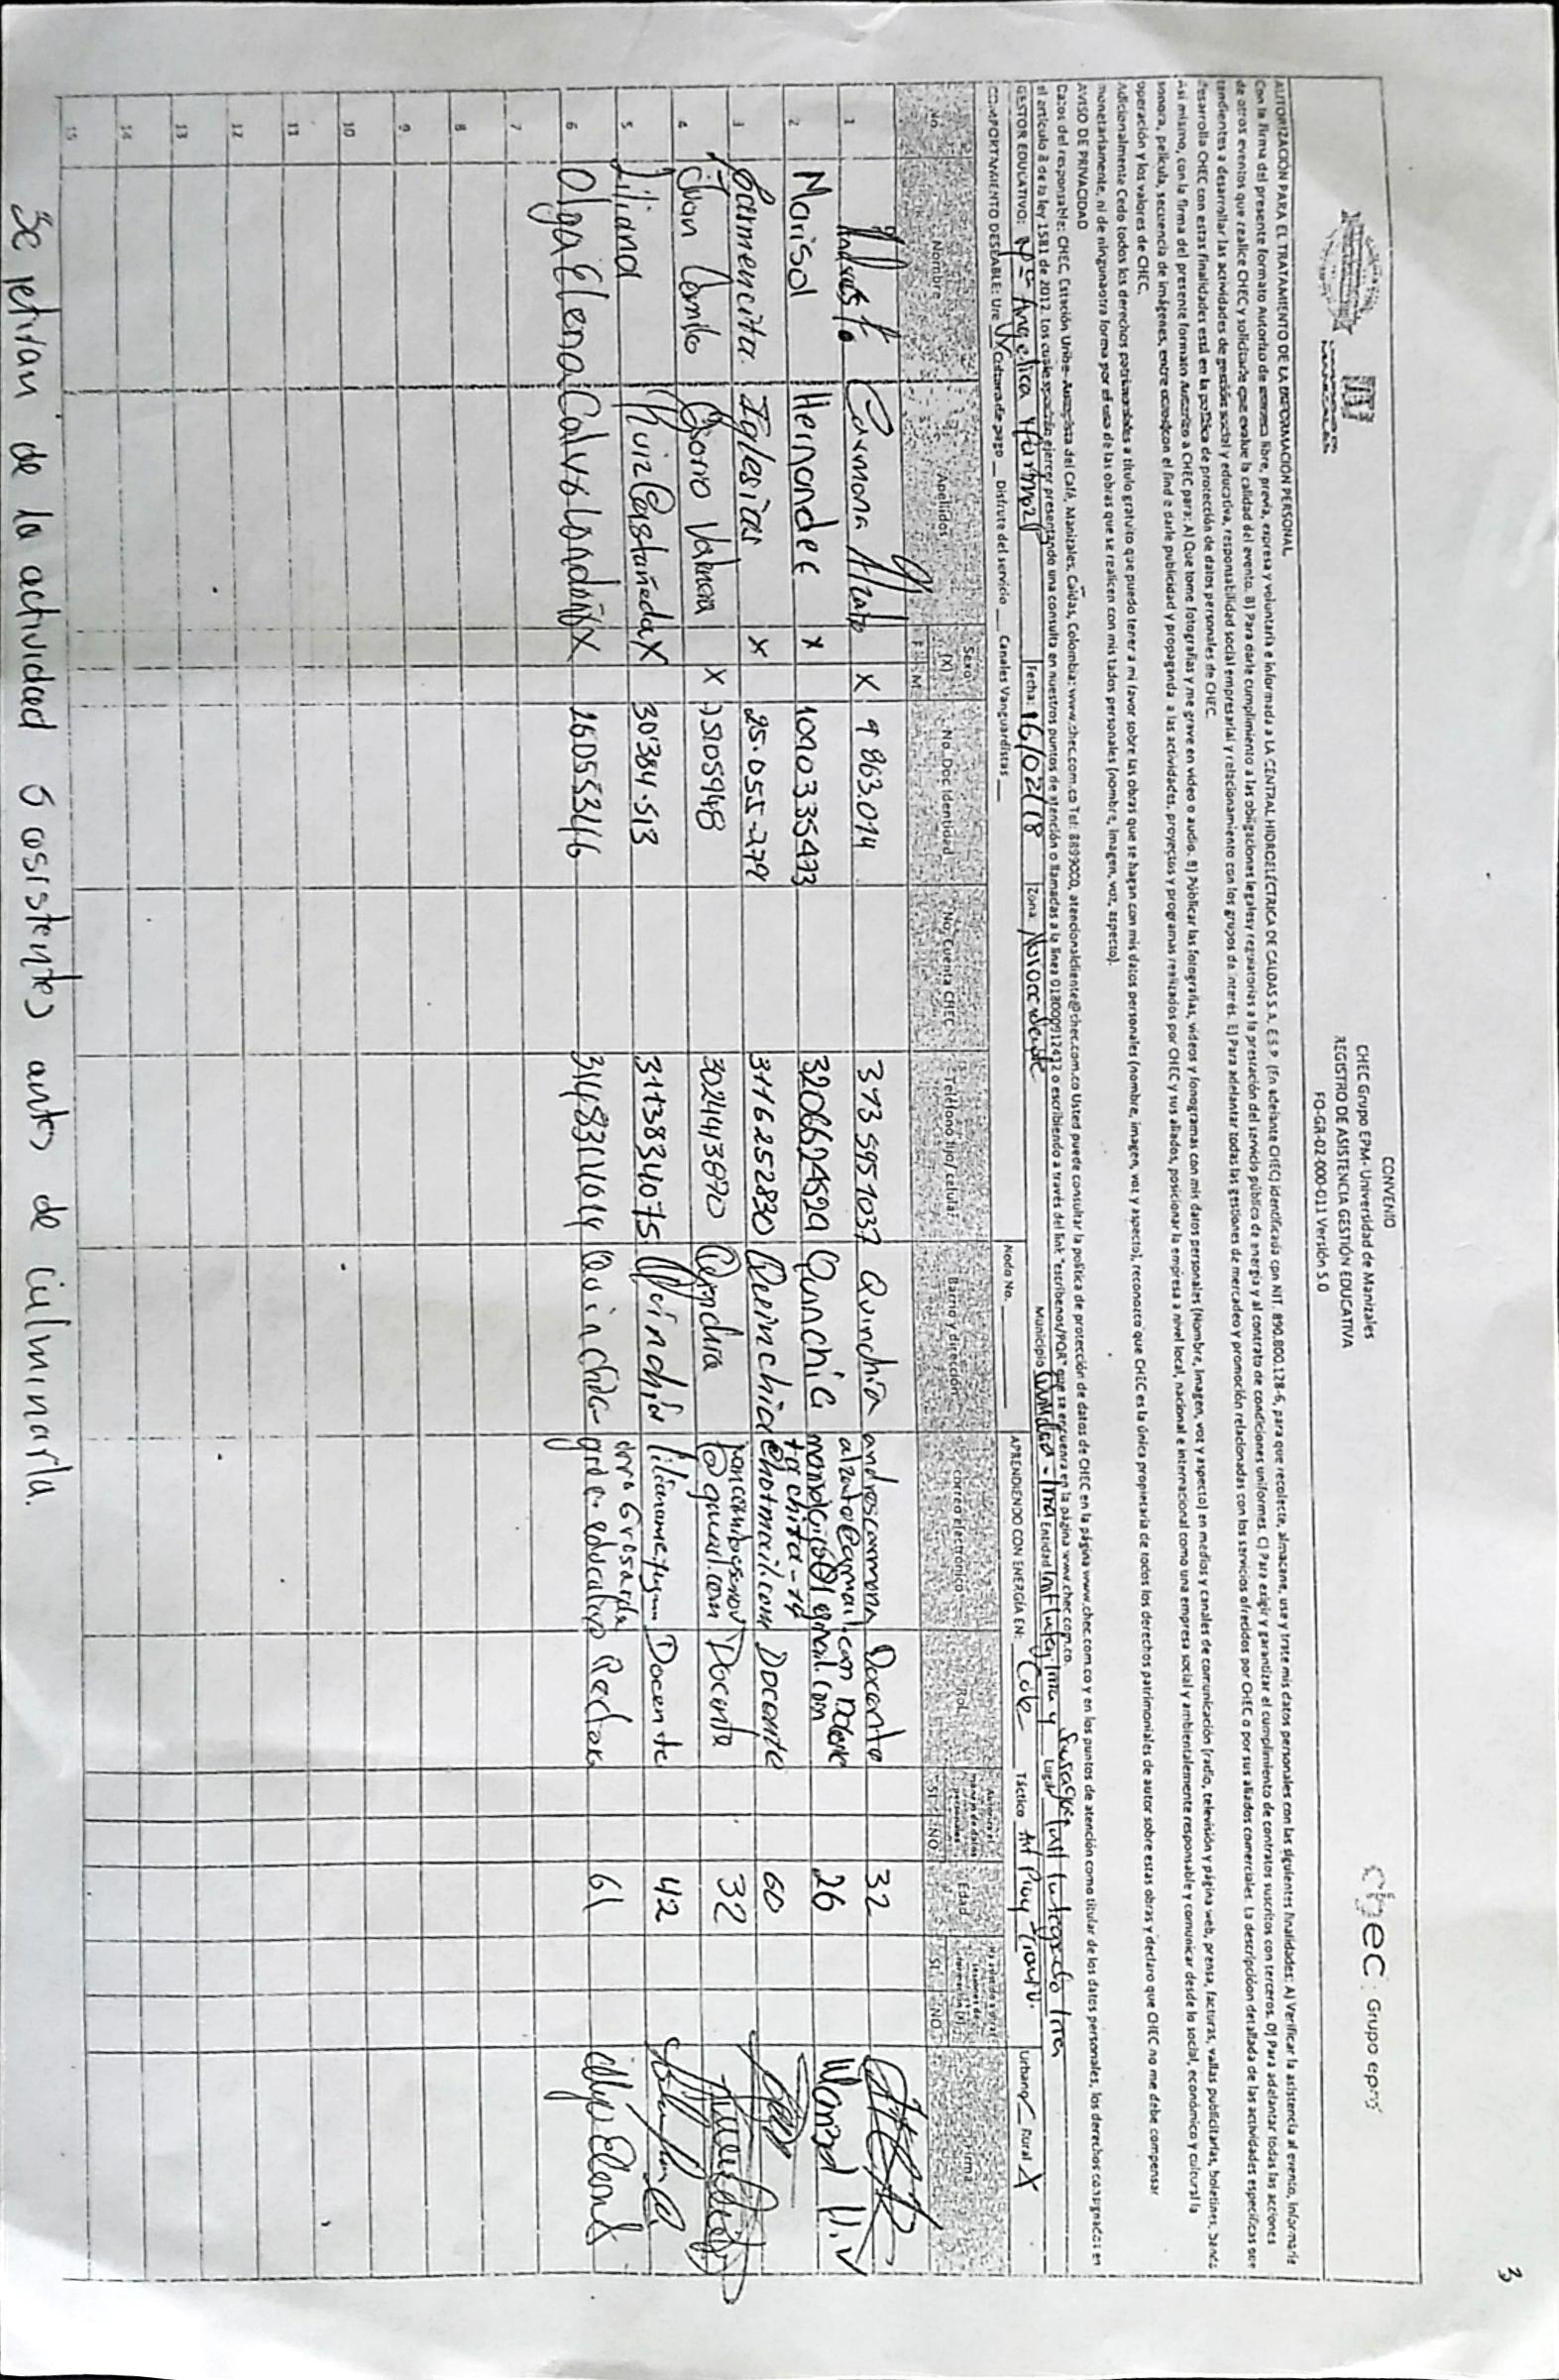 3
CONVENIO
CHEC Grupo EPM- Universidad de Manizales
REGISTRO DE ASISTENCIA GESTIÓN EDUCATIVA
FO-GR-02-000-011 Versión 5.0
chec Grupo epm
AUTORIZACIÓN PARA EL TRATAMIENTO DE LA INFORMACIÓN PERSONAL
Con la firma del presente formato Autorizo de manera libre, previa, expresa y voluntaria e informada a LA CENTRAL HIDROELÉCTRICA DE CALDAS S.A. E.S.P. (En adelante CHEC) identificada con NIT. 890.800.128-6, para que recolecte, almacene, use y trate mis datos personales con las siguientes finalidades: A) Verificar la asistencia al evento, informarle
de otros eventos que realice CHEC y solicitarle que evalue la calidad del evento. B) Para darle cumplimiento a las obligaciones legales y regulatorias a la prestación del servicio público de energía y al contrato de condiciones uniformes. C) Para exigir y garantizar el cumplimiento de contratos suscritos con terceros. D) Para adelantar todas las acciones
tendientes a desarrollar las actividades de gestión social y educativa, responsabilidad social empresarial y relacionamiento con los grupos de interés. E) Para adelantar todas las gestiones de mercadeo y promoción relacionadas con los servicios ofrecidos por CHEC o por sus aliados comerciales. La descripción detallada de las actividades específicas que
desarrolla CHEC con estas finalidades está en la política de protección de datos personales de CHEC.
Así mismo, con la firma del presente formato Autorizo a CHEC para: A) Que tome fotografías y me grave en video o audio. B) Publicar las fotografías, videos y fonogramas con mis datos personales (Nombre, Imagen, voz y aspecto) en medios y canales de comunicación (radio, televisión y página web, prensa, facturas, vallas publicitarias, boletines, banda
sonora, película, secuencia de imágenes, entre otros) con el find e darle publicidad y propaganda a las actividades, proyectos y programas realizados por CHEC y sus aliados, posicionar la empresa a nivel local, nacional e internacional como una empresa social y ambientalemente responsable y comunicar desde lo social, económico y cultural la
operación y los valores de CHEC.
Adicionalmente Cedo todos los derechos patrimoniales a título gratuito que puedo tener a mi favor sobre las obras que se hagan con mis datos personales (nombre, imagen, voz y aspecto), reconozco que CHEC es la única propietaria de todos los derechos patrimoniales de autor sobre estas obras y declaro que CHEC no me debe compensar
monetariamente, ni de ningunaotra forma por el uso de las obras que se realicen con mis tados personales (nombre, imagen, voz, aspecto).
AVISO DE PRIVACIDAD
Datos del responsable: CHEC, Estación Uribe-Autopista del Café, Manizales, Caldas, Colombia: www.chec.com.co Tel: 8899000, atencionalcliente@chec.com.co Usted puede consultar la política de protección de datos de CHEC en la página www.chec.com.co y en los puntos de atención como titular de los datos personales, los derechos consignados en
el artículo 8 de la ley 1581 de 2012. Los cuales podrán ejercer presentando una consulta en nuestros puntos de atención o llamadas a la línea 018000912432 o escribiendo a través del link "escríbenos/PQR" que se encuenra en la página www.chec.com.co.
GESTOR EDUCATIVO: Mª Angelica Fecha: 16/02/18 Zona: Noroccidente Municipio Entidad Lugar Inst Integrado Irra
COMPORTAMIENTO DESEABLE: Ure Cultura de pago Disfrute del servicio Canales Vanguardistas Nodo No. APRENDIENDO CON ENERGÍA EN: Cole Táctico Urbano Rural X
No. Nombre Apellidos Sexo (X) F M No. Doc Identidad No. Cuenta CHEC Teléfono fijo/ celular Barrio y dirección correo electrónico Rol SI NO Edad SI NO Firma
1 Andres F. Carmona Alzate X 9 863.014 313 5951037 Quinchía andrescarmona alzate@gmail.com Docente 32
2 Marisol Hernandez X 1090335473 3206624529 Quinchia Docente 26 Marisol H. V
3 Carmencita Iglesias X 25.055-279 3116252830 Quinchia tachita-14 @hotmail.com Docente 60
4 Juan Camilo Osorio Valencia X 75105948 3024413890 @gmail.com Docente 32
5 Liliana Ruiz Castañeda X 30'384.513 3113834075 Quinchía Docente 42
6 Olga Elena Calvo Londoño X 3148311019 Quinchía Rectora 61 Olga Elena
7
8
9
10
11
12
13
14
15
Se retiran de la actividad 6 asistentes antes de culminarla.